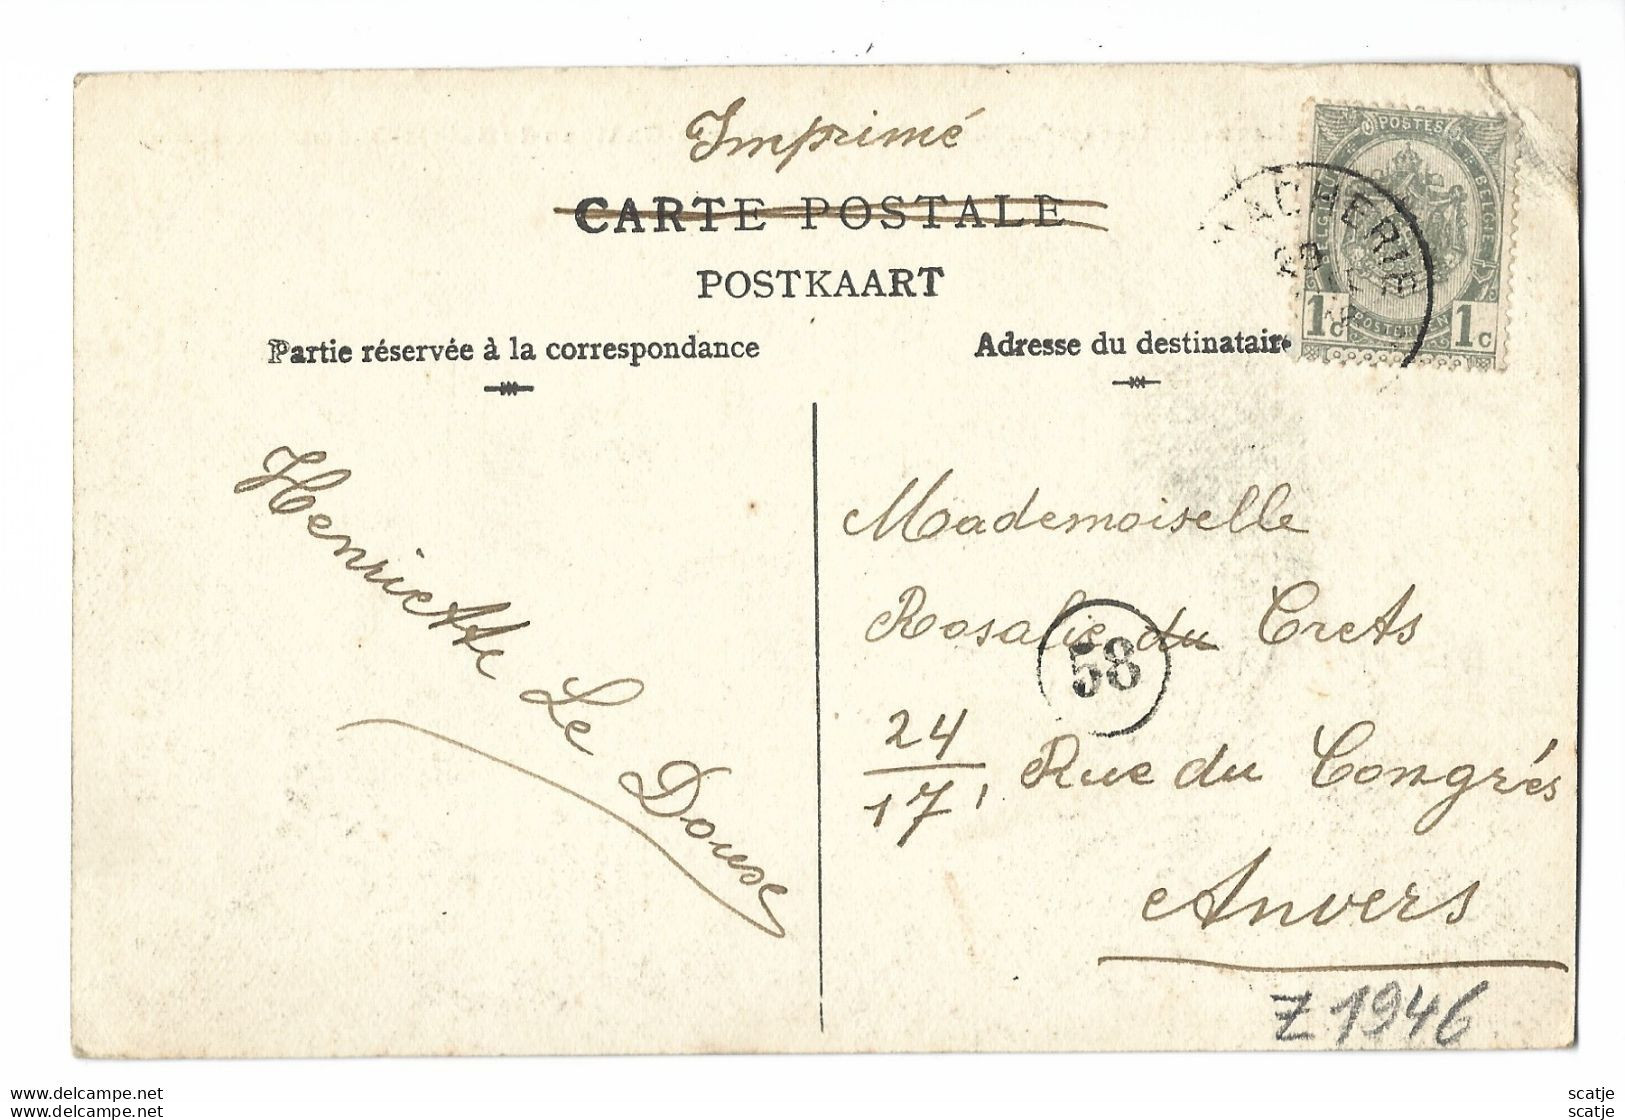 Imprimé
CARTE POSTALE
POSTKAART
Partie réservée à la correspondance
Adresse du destinataire
POSTES
BELGIQUE
POSTERIJEN
1c 1c
Henriette Le Douse
Mademoiselle
Rosalie du Crets
58
24/17, Rue du Congrès
Anvers
Z 1946
www.delcampe.net
www.delcampe.net
scatje
scatje